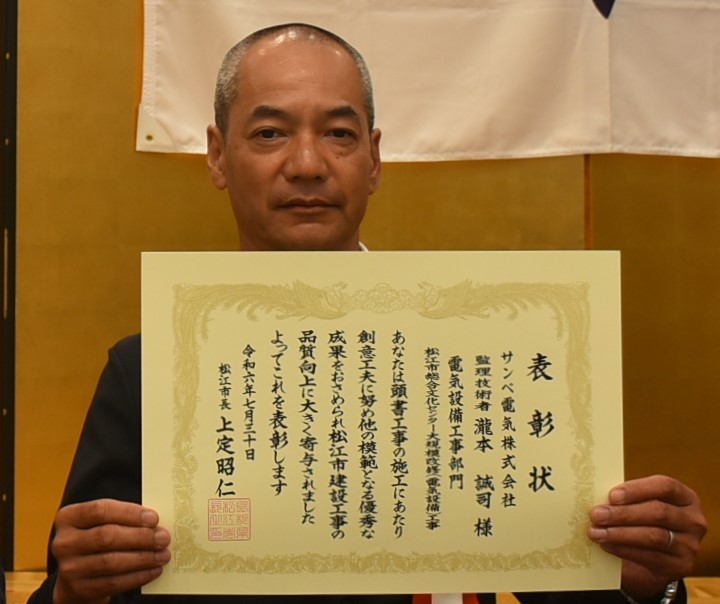 表彰状
サンベ電気株式会社
監理技術者 瀧本 誠司 様
電気設備工事部門
松江市総合文化センター大規模改修(電気設備)工事
あなたは頭書工事の施工にあたり
創意工夫に努め他の模範となる優秀な
成果をおさめられ松江市建設工事の
品質向上に大きく寄与されました
よってこれを表彰します
令和六年七月三十日
松江市長 上定昭仁